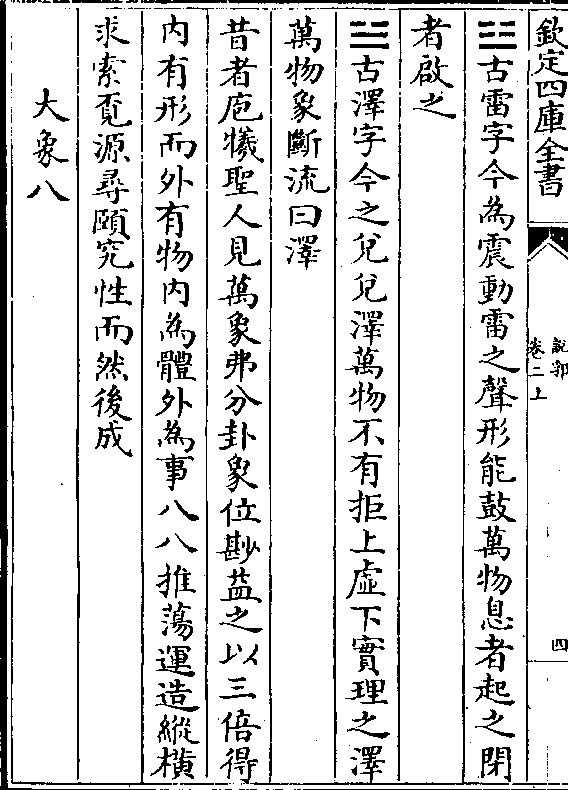 欽定四庫全書
說郛
卷二上
四
☳古雷字今為震動雷之聲形能鼓萬物息者起之閉
者啟之
☱古澤字今之兌兌澤萬物不有拒上虛下實理之澤
萬物象斷流曰澤
昔者庖犧聖人見萬象弗分卦象位尠益之以三倍得
内有形而外有物内為體外為事八八推蕩運造縱橫
求索覓源尋頤究性而然後成
大象八